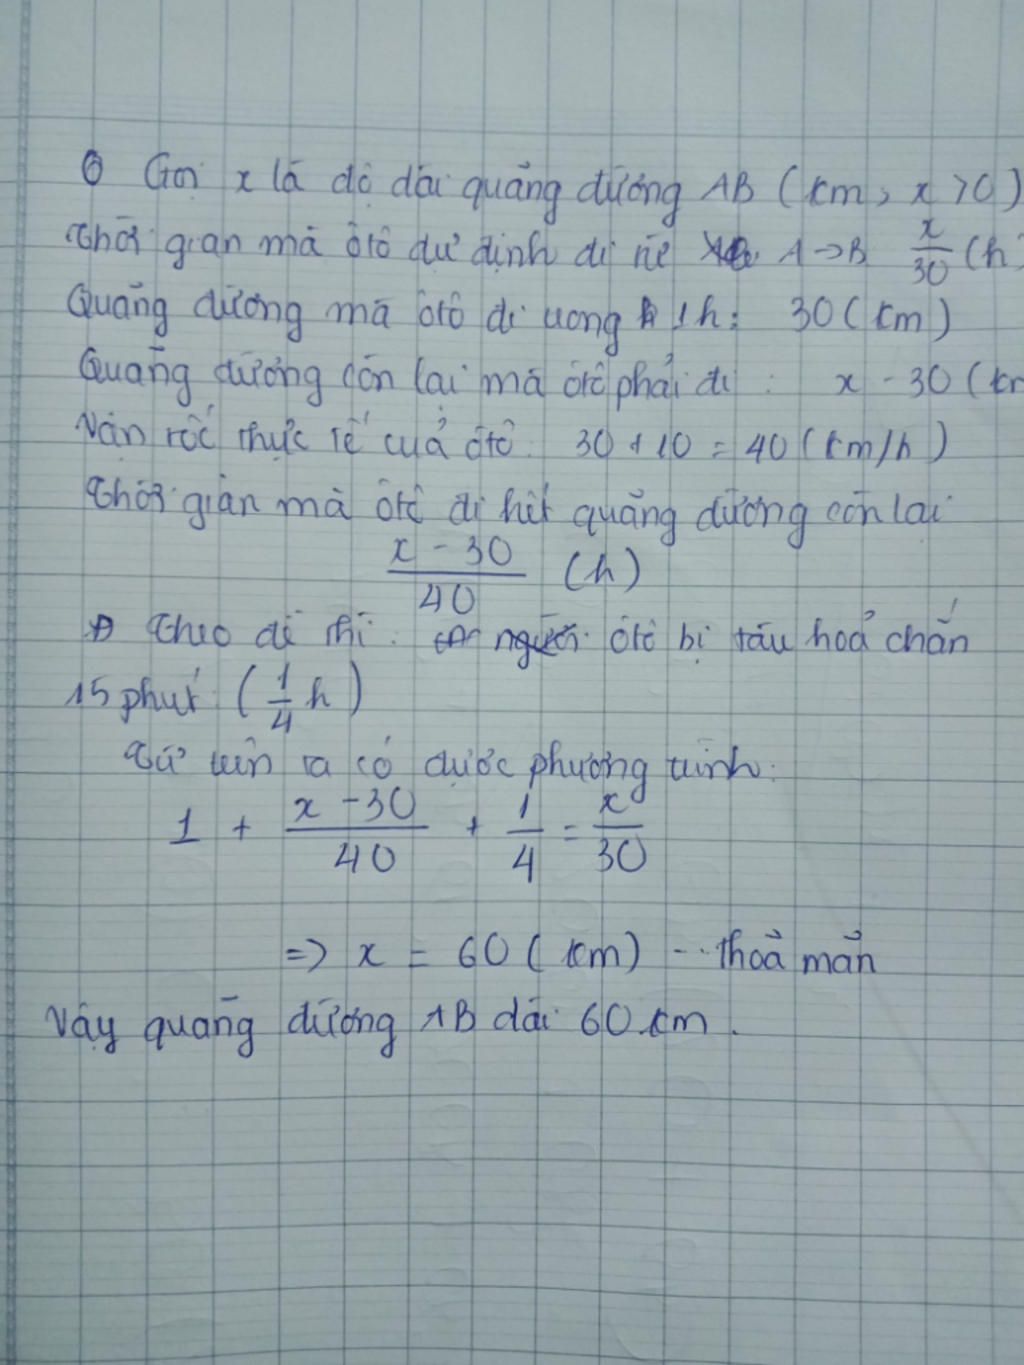 Gọi x là độ dài quãng đường AB (km, x > 0)
Thời gian mà ôtô dự định đi từ A → B x/30 (h)
Quãng đường mà ôtô đi trong 1h: 30 (km)
Quãng đường còn lại mà ôtô phải đi: x - 30 (km
Vận tốc thực tế của ôtô: 30 + 10 = 40 (km/h)
Thời gian mà ôtô đi hết quãng đường còn lại
x - 30 / 40 (h)
Theo đề thì: người ôtô bị tàu hoả chắn
15 phút (1/4 h)
Từ trên ta có được phương trình:
1 + x - 30 / 40 + 1/4 = x/30
=> x = 60 (km) -- thoả mãn
Vậy quãng đường AB dài 60 km.